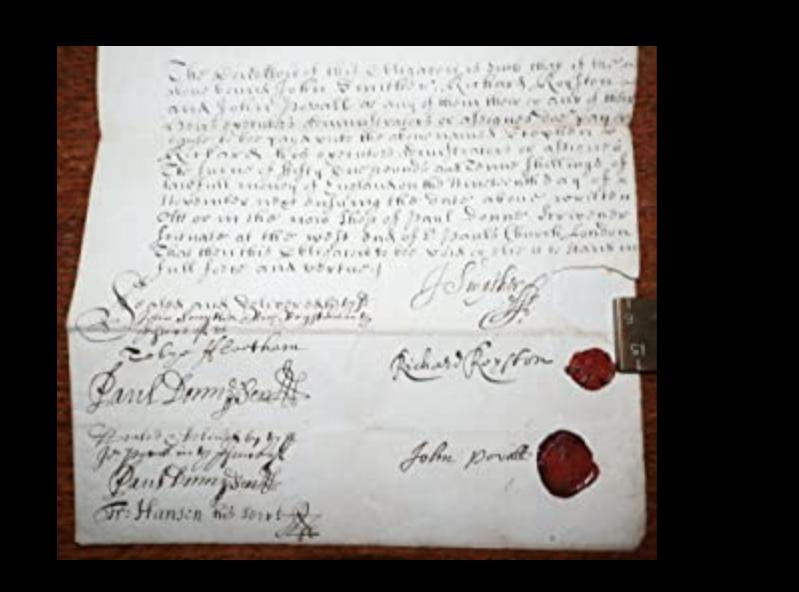 The Condition of this Obligacon is such that if the
above bound John Smither, Richard Royston
and John Povall or any of them their or any of their
heires executors administrators or assignes doe pay or
cause to be payd unto the above named Stephen
Richard his executors administrators or assignes
The summe of fifty One pounds and Tenne shillings of
lawfull money of England on the Nineteenth day of
November next ensuing the date above written
Att or in the now shop of Paul Donne Scrivener
scituate at the west End of St Pauls Church London
That then this Obligacon to be void or else it to stand in
full force and vertue
J Smyther
Sealed and delivered by
Tobye
Richard Royston
Paul Donne Scr
John Povall
Sealed & delivered by
Paul Donne Scr
Hansen his servt
6
15